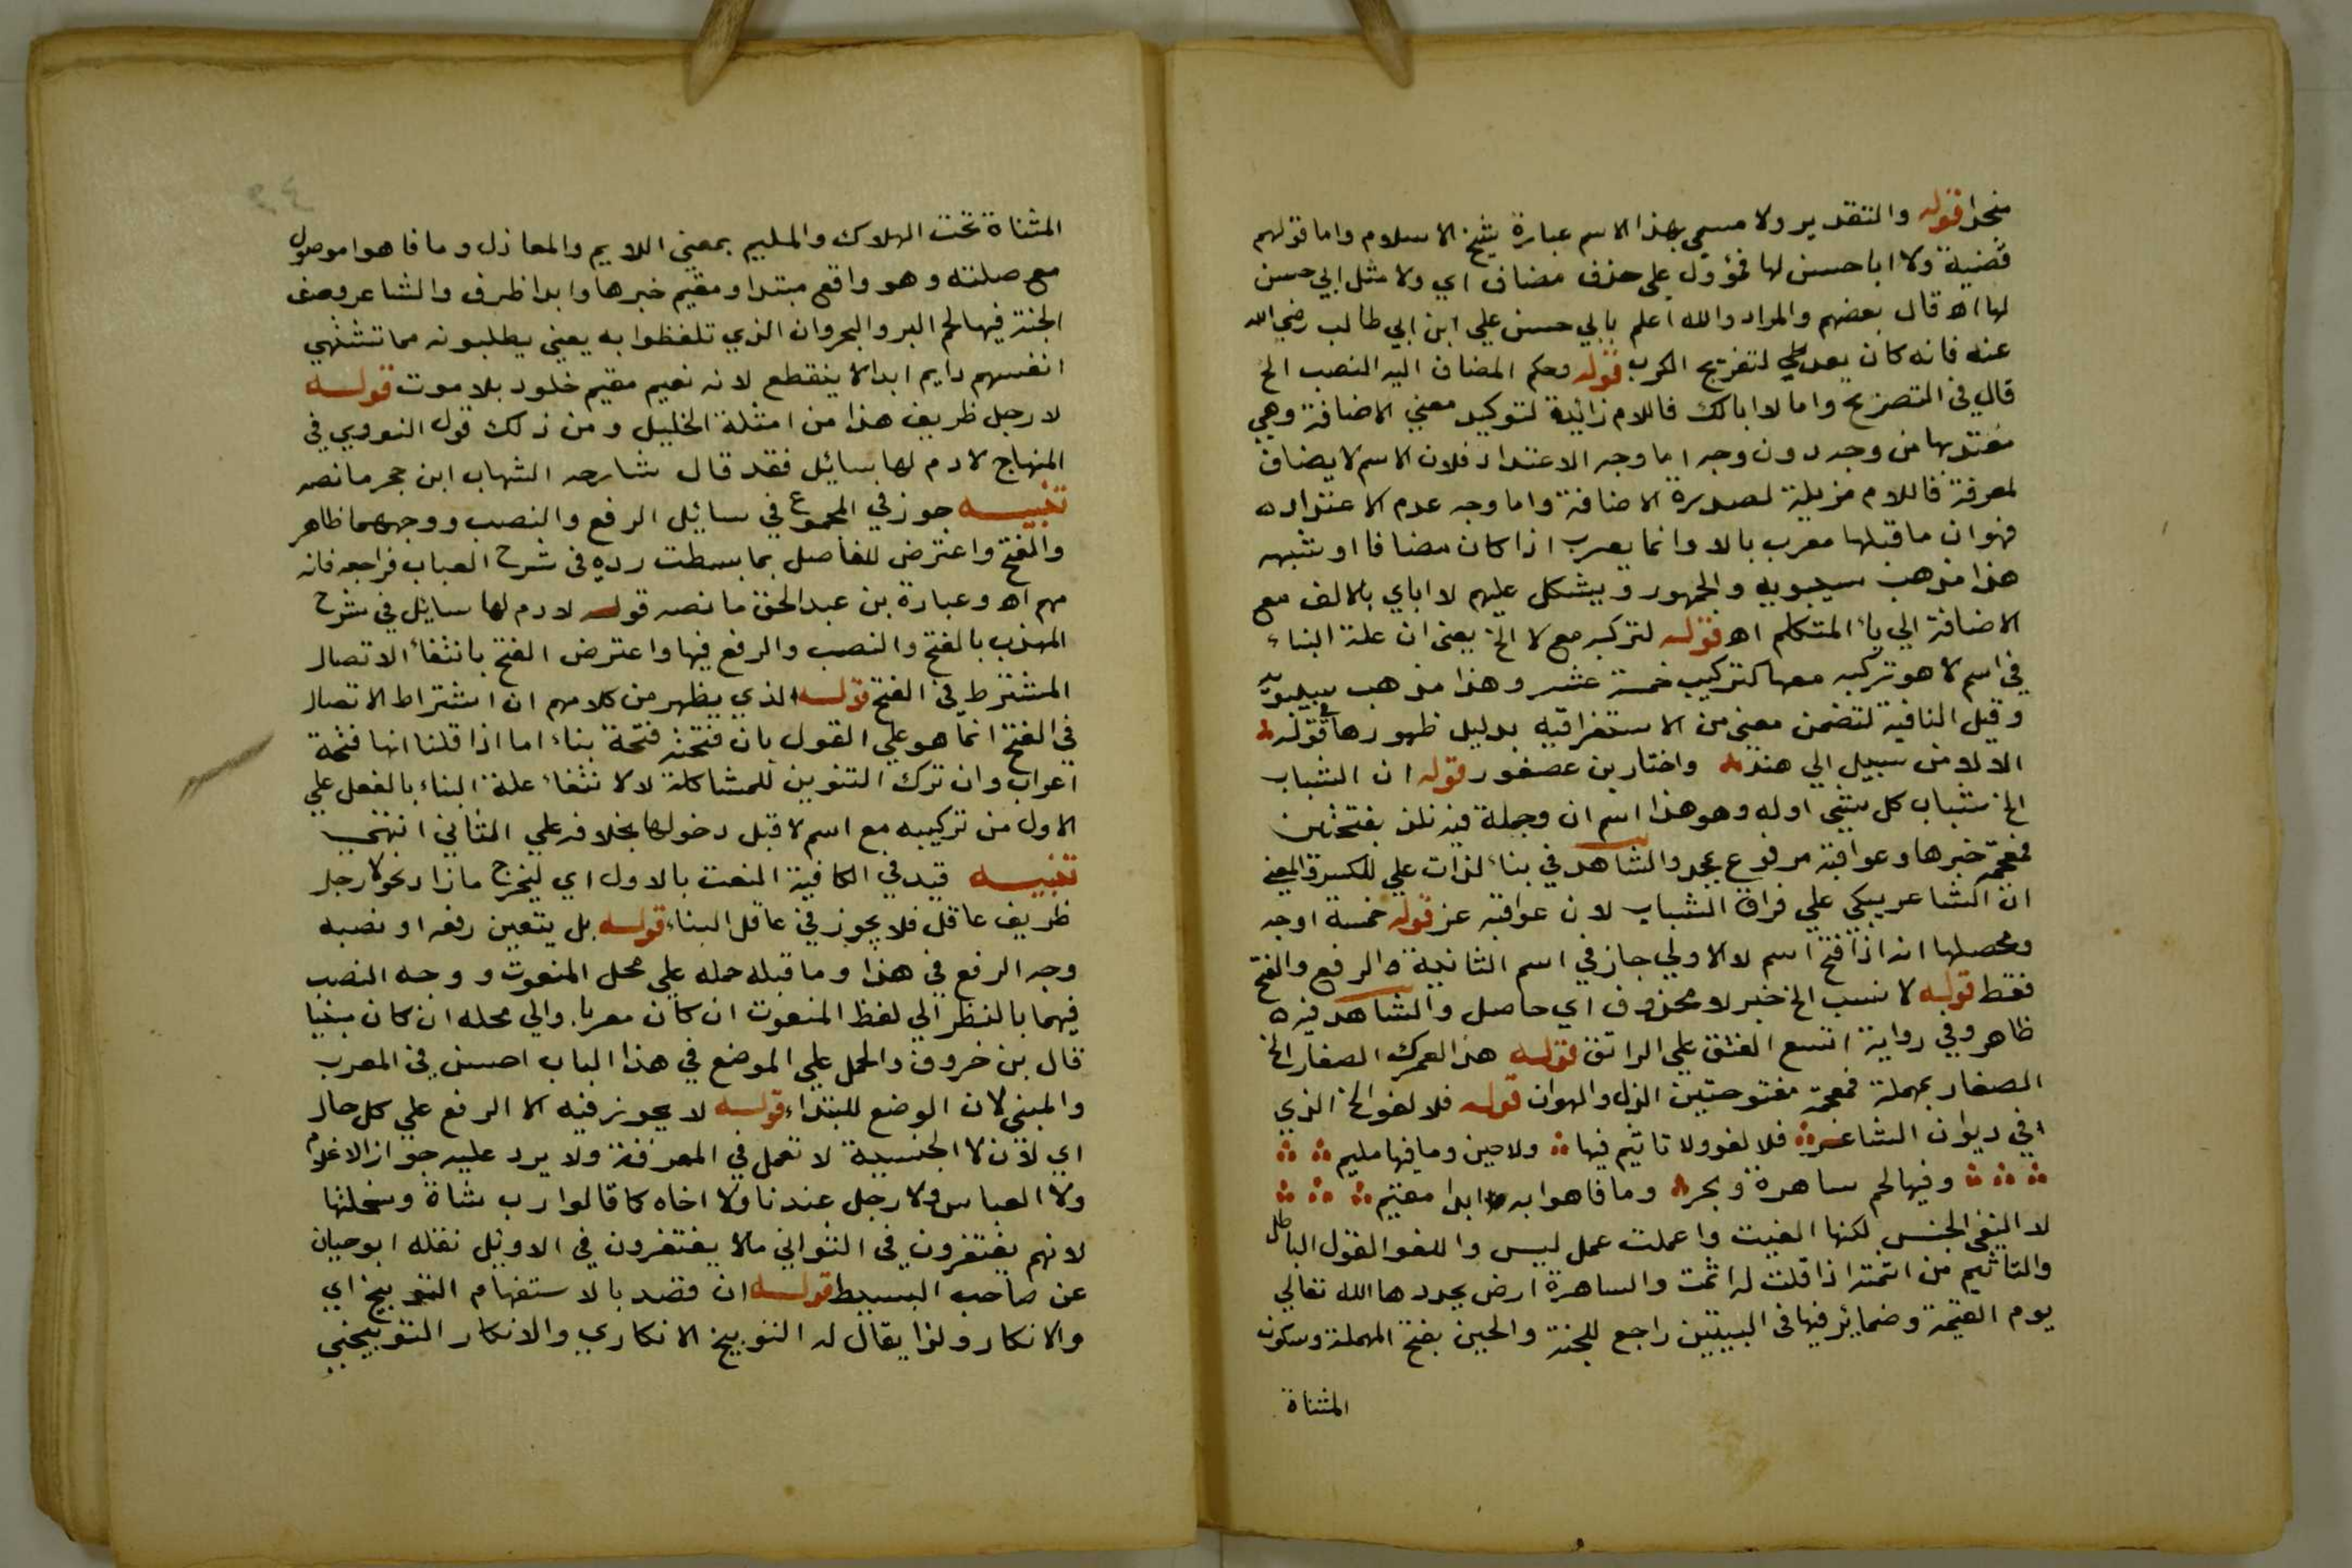 قوله والتقدير ولا مسمي بهذا الاسم عبارة شيخ الاسلام واما قولهم
قضية ولا ابا حسن لها فمؤول علي حذف مضاف اي ولا مثل ابي حسن
لها اه قال بعضهم والمراد والله اعلم بابي حسن علي ابن ابي طالب رضي الله
عنه فانه كان لتفريج الكرب قوله وحكم المضاف اليه النصب الخ
قال في التصريح واما لا ابا لك فاللام زائدة لتوكيد معني الاضافة وهي
معتد بها من وجه دون وجه اما وجه الاعتداد فلان الاسم لا يضاف
لمعرفة فاللام مزيلة لصورة الاضافة واما وجه عدم الاعتداد ه
فهو ان ما قبلها معرب بالا وانما يعرب اذا كان مضافا او شبهه
هذا مذهب سيبويه والجمهور ويشكل عليهم لا اباي بالالف مع
الاضافة الي ياء المتكلم اه قوله لتركبه مع لا الخ يعني ان علة البناء
في اسم لا هو تركبه معها كتركيب خمسة عشر وهذا مذهب سيبويه
وقيل النافية لتضمن معني من الاستغراقية بدليل ظهورها في قوله
الا لا من سبيل الي هند واختار بن عصفور قوله ان الشباب
الخ شباب كل شيء اوله وهو هذا اسم ان وجملة فيه نلذ بفتحتين
فمعجمة خبرها وعواقبه مرفوع بمجد والشاهد في بناء لذات علي الكسرة والمعني
ان الشاعر يبكي علي فراق الشباب لان عواقبه عز قوله خمسة اوجه
ومحصلها انه اذا فتح اسم لا الاولي جاز في اسم الثانية ه الرفع والفتح
فقط قوله لا نسب الخ خبر لا محذوف اي حاصل والشاهد فيه ه
ظاهر وفي رواية اتسع الفتق علي الراتق قوله هذا لعمرك الصغار الخ
الصغار بمهملة فمعجمة مفتوحتين الذل والهوان قوله فلا لغو الخ الذي
في ديوان الشاعر فلا لغو ولا تاثيم فيها ولا حين وما فيها مليم
وفيها لحم ساهرة وبحر وما فاهوا به ابدا مقيم
لا لنفي الجنس لكنها الغيت واعملت عمل ليس واللغو القول الباطل
والتاثيم من اثمته اذا قلت له اثمت والساهرة ارض يجددها الله تعالي
يوم القيمة وضمائر فيها في البيتين راجع للجنة والحين بفتح المهملة وسكون
المثناة
المثناة تحت الهلاك والمليم بمعني اللايم والمعاذل وما فاهوا موصول
مع صلته وهو واقع مبتدا ومقيم خبرها وابدا ظرف والشاعر وصف
الجنة فيها لحم البر والبحر وان الذي تلفظوا به يعني يطلبونه مما تشتهي
انفسهم دايم ابدا لا ينقطع لانه نعيم مقيم خلود بلا موت قوله
لا رجل ظريف هذا من امثلة الخليل ومن ذلك قول النووي في
المنهاج لا دم لها سائل فقد قال شارحه الشهاب ابن حجر ما نصه
تنبيه جوز في المجموع في سائل الرفع والنصب ووجههما ظاهر
والفتح واعترض للفاصل بما بسطت رده في شرح العباب فراجعه فانه
مهم اه وعبارة بن عبد الحق ما نصه قوله لا دم لها سايل في شرح
المهذب بالفتح والنصب والرفع فيها واعترض الفتح بانتفاء الاتصال
المشترط في الفتح قوله الذي يظهر من كلامهم ان اشتراط الاتصال
في الفتح انما هو علي القول بان فتحته فتحة بناء اما اذا قلنا انها فتحة
اعراب وان ترك التنوين للمشاكلة لا لانتفاء علة البناء بالفعل علي
الاول من تركيبه مع اسم لا قبل دخولها بخلافه علي الثاني انتهي
تنبيه قيد في الكافية النعت بالاول اي ليخرج ما زاد نحو لا رجل
ظريف عاقل فلا يجوز في عاقل البناء قوله بل يتعين رفعه او نصبه
وجه الرفع في هذا وما قبله حمله علي محل المنعوت ووجه النصب
فيهما بالنظر الي لفظ المنعوت ان كان معربا والي محله ان كان مبنيا
قال بن خروف والحمل علي الموضع في هذا الباب احسن في المعرب
والمبني لان الوضع للبتداء قوله لا يجوز فيه الا الرفع علي كل حال
اي لان لا الجنسية لا تعمل في المعرفة ولا يرد عليه جواز لا غلام
ولا العباس ولا رجل عندنا ولا اخاه كما قالوا رب شاة وسخلتها
لانهم يغتفرون في الثواني ما لا يغتفرون في الاوئل نقله ابو حيان
عن صاحب البسيط قوله ان قصد بالاستفهام التوبيخ اي
والانكار ولذا يقال له التوبيخ الانكاري والانكار التوبيخي